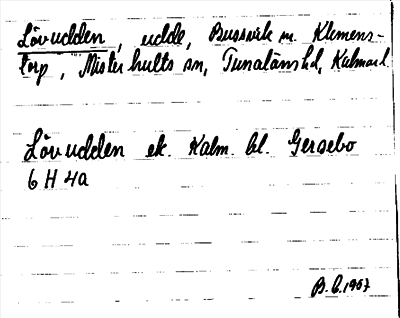 Lövudden, udde, Bussvik m Klemens-
torp, Misterhults sn, Tunaläns hd, Kalmar l.
Lövudden ek. Kalm. bl. Gersebo
6 H 4a
B.E. 1967